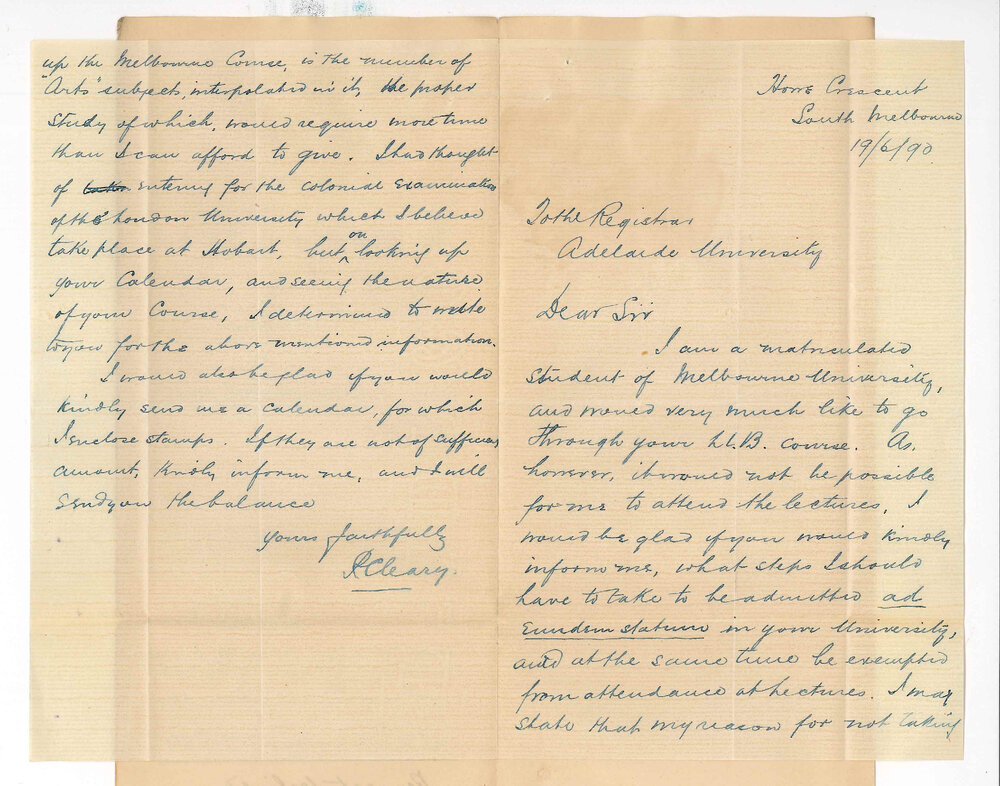 Howe Crescent
South Melbourne
19/6/90
To the Registrar
Adelaide University
Dear Sir
I am a matriculated
student of Melbourne University,
and would very much like to go
through your LL.B. course. As,
however, it would not be possible
for me to attend the lectures, I
would be glad if you would kindly
inform me, what steps I should
have to take to be admitted ad
Eundem statum in your University,
and at the same time be exempted
from attendance at Lectures. I may
state that my reason for not taking
up the Melbourne Course, is the number of
"Arts" subjects, interpolated in it, the proper
study of which, would require more time
than I can afford to give. I had thought
of entering for the Colonial Examination
of the London University which I believe
take place at Hobart, but on looking up
your Calendar, and seeing the nature
of your Course, I determined to write
to you for the above mentioned information.
I would also be glad if you would
kindly send me a Calendar, for which
I enclose stamps. If they are not of sufficient
amount, kindly inform me, and I will
send you the balance
Yours faithfully
Cleary.